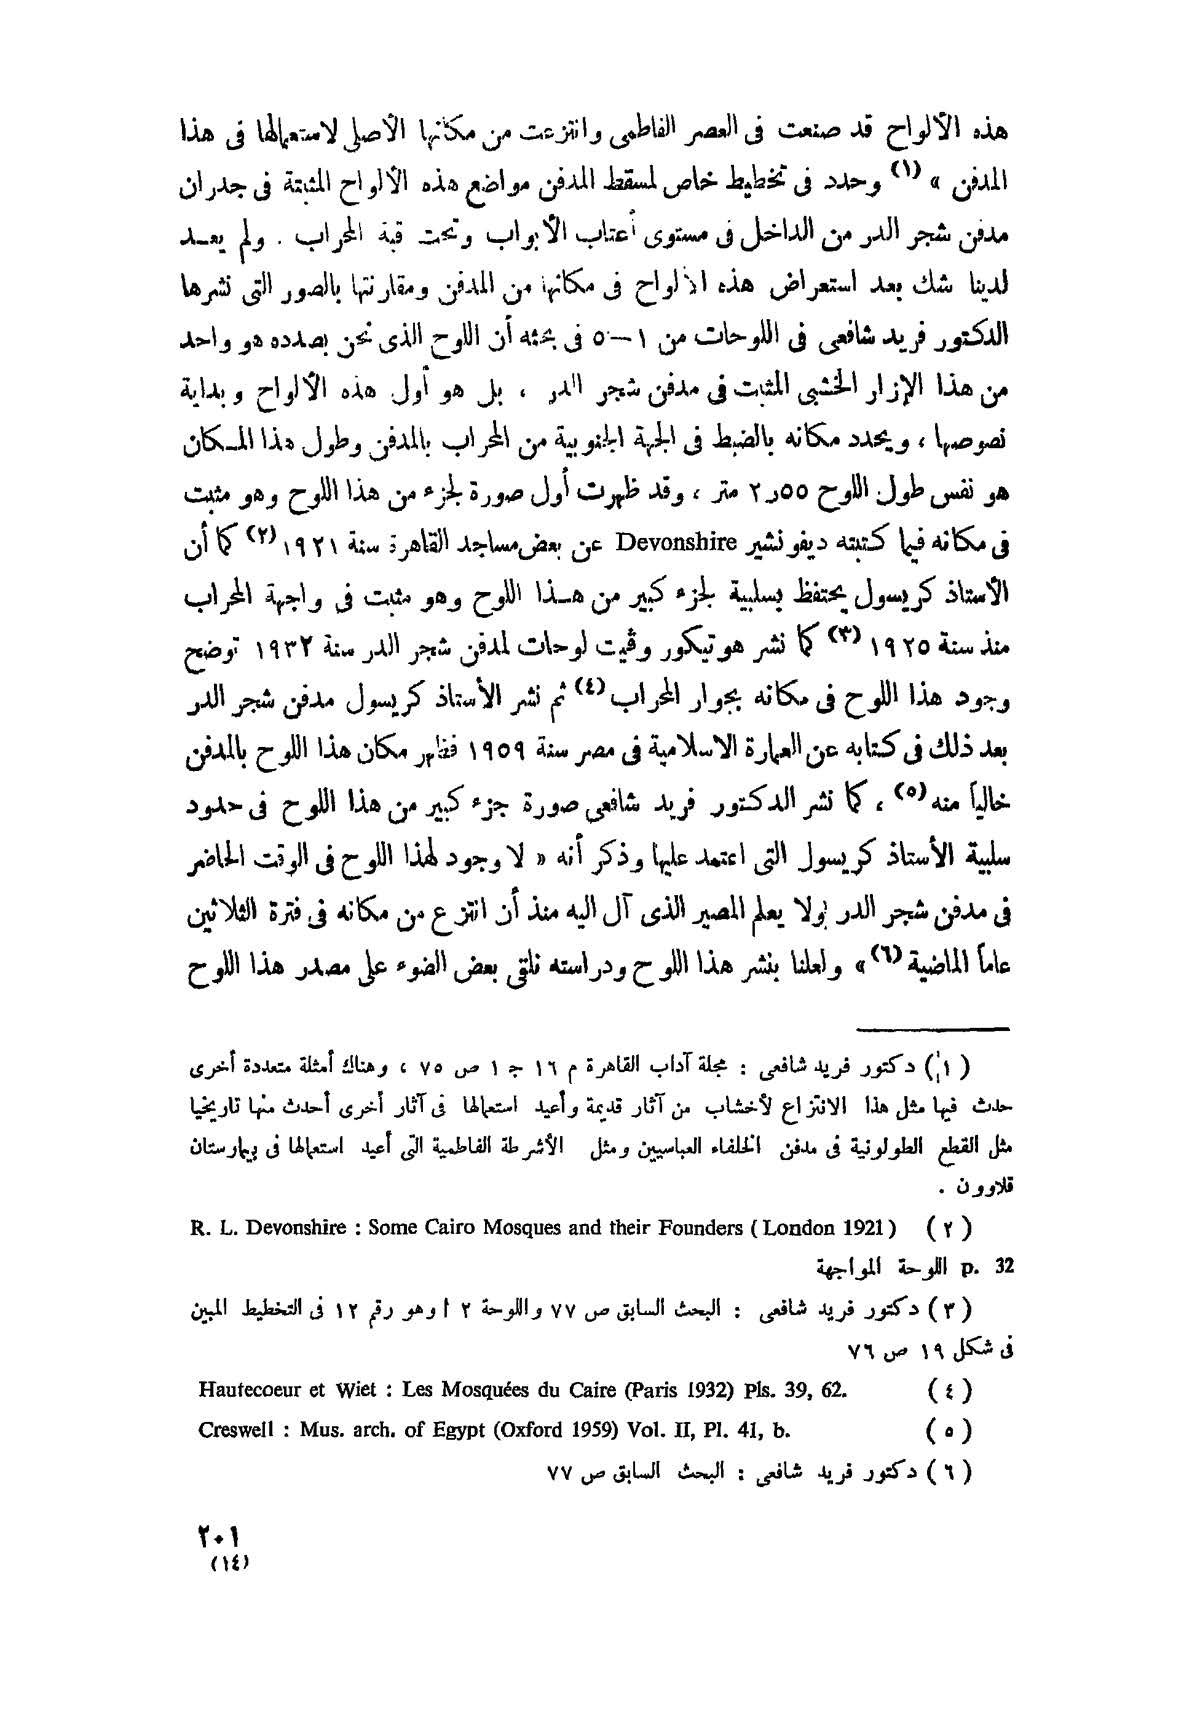 هذه الألواح قد صنعت فى العصر الفاطمى وانتزعت من مكانها الأصلى لاستعمالها فى هذا
المدفن » (١) وحدد فى تخطيط خاص لمسقط المدفن مواضع هذه الألواح المثبتة فى جدران
مدفن شجر الدر من الداخل فى مستوى أعتاب الأبواب وتحت قبة المحراب . ولم يعــد
لدينا شك بعد استعراض هذه الألواح فى مكانها من المدفن ومقارنتها بالصور التى نشرها
الدكتور فريد شافعى فى اللوحات من ١ – ٥ فى بحثه أن اللوح الذى نحن بصدده هو واحد
من هذا الإزار الخشبى المثبت فى مدفن شجر الدر ، بل هو أول هذه الألواح وبداية
نصوصها ، ويحدد مكانه بالضبط فى الجهة الجنوبية من المحراب بالمدفن وطول هذا المـكان
هو نفس طول اللوح ٥٥ر٢ متر ، وقد ظهرت أول صورة لجزء من هذا اللوح وهو مثبت
فى مكانه فيما كتبته ديفونشير Devonshire عن بعض مساجد القاهرة سنة ١٩٢١ (٢) كما أن
الأستاذ كريسول يحتفظ بسلبية لجزء كبير من هــذا اللوح وهو مثبت فى واجهة المحراب
منذ سنة ١٩٢٥ (٣) كما نشر هوتيكور وڤيت لوحات لمدفن شجر الدر سنة ١٩٣٢ توضح
وجود هذا اللوح فى مكانه بجوار المحراب (٤) ثم نشر الأستاذ كريسول مدفن شجر الدر
بعد ذلك فى كتابه عن العمارة الاسلامية فى مصر سنة ١٩٥٩ فظهر مكان هذا اللوح بالمدفن
خالياً منه (٥) ، كما نشر الدكتور فريد شافعى صورة جزء كبير من هذا اللوح فى حدود
سلبية الأستاذ كريسول التى اعتمد عليها وذكر أنه « لا وجود لهذا اللوح فى الوقت الحاضر
فى مدفن شجر الدر ولا يعلم المصير الذى آل اليه منذ أن انتزع من مكانه فى فترة الثلاثين
عاماً الماضية (٦) » ولعلنا بنشر هذا اللوح ودراسته نلقى بعض الضوء على مصدر هذا اللوح
(١) دكتور فريد شافعى : مجلة آداب القاهرة م ١٦ ج ١ ص ٧٥ ، وهناك أمثلة متعددة أخرى
حدث فيها مثل هذا الانتزاع لأخشاب من آثار قديمة وأعيد استعمالها فى آثار أخرى أحدث منها تاريخيا
مثل القطع الطولونية فى مدفن الخلفاء العباسيين ومثل الأشرطة الفاطمية التى أعيد استعمالها فى بيمارستان
قلاوون .
(٢) R. L. Devonshire : Some Cairo Mosques and their Founders (London 1921)
p. 32 اللوحة المواجهة
(٣) دكتور فريد شافعى : البحث السابق ص ٧٧ واللوحة ٢ ا وهو رقم ١٢ فى التخطيط المبين
فى شكل ١٩ ص ٧٦
(٤) Hautecoeur et Wiet : Les Mosquées du Caire (Paris 1932) Pls. 39, 62.
(٥) Creswell : Mus. arch. of Egypt (Oxford 1959) Vol. II, Pl. 41, b.
(٦) دكتور فريد شافعى : البحث السابق ص ٧٧
٢٠١
(١٤)